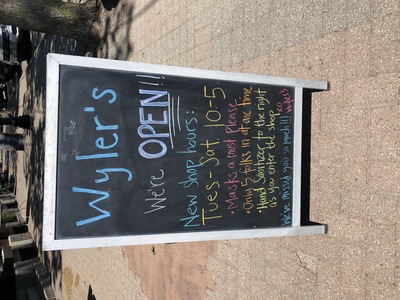 Wyler's
We're OPEN!!
New shop hours:
Tues-Sat 10-5
•Masks a must please
•Only 5 folks in at one time
•Hand Sanitizer to the right
as you enter the shop
We've missed you so much!!! xxo
Wyler's